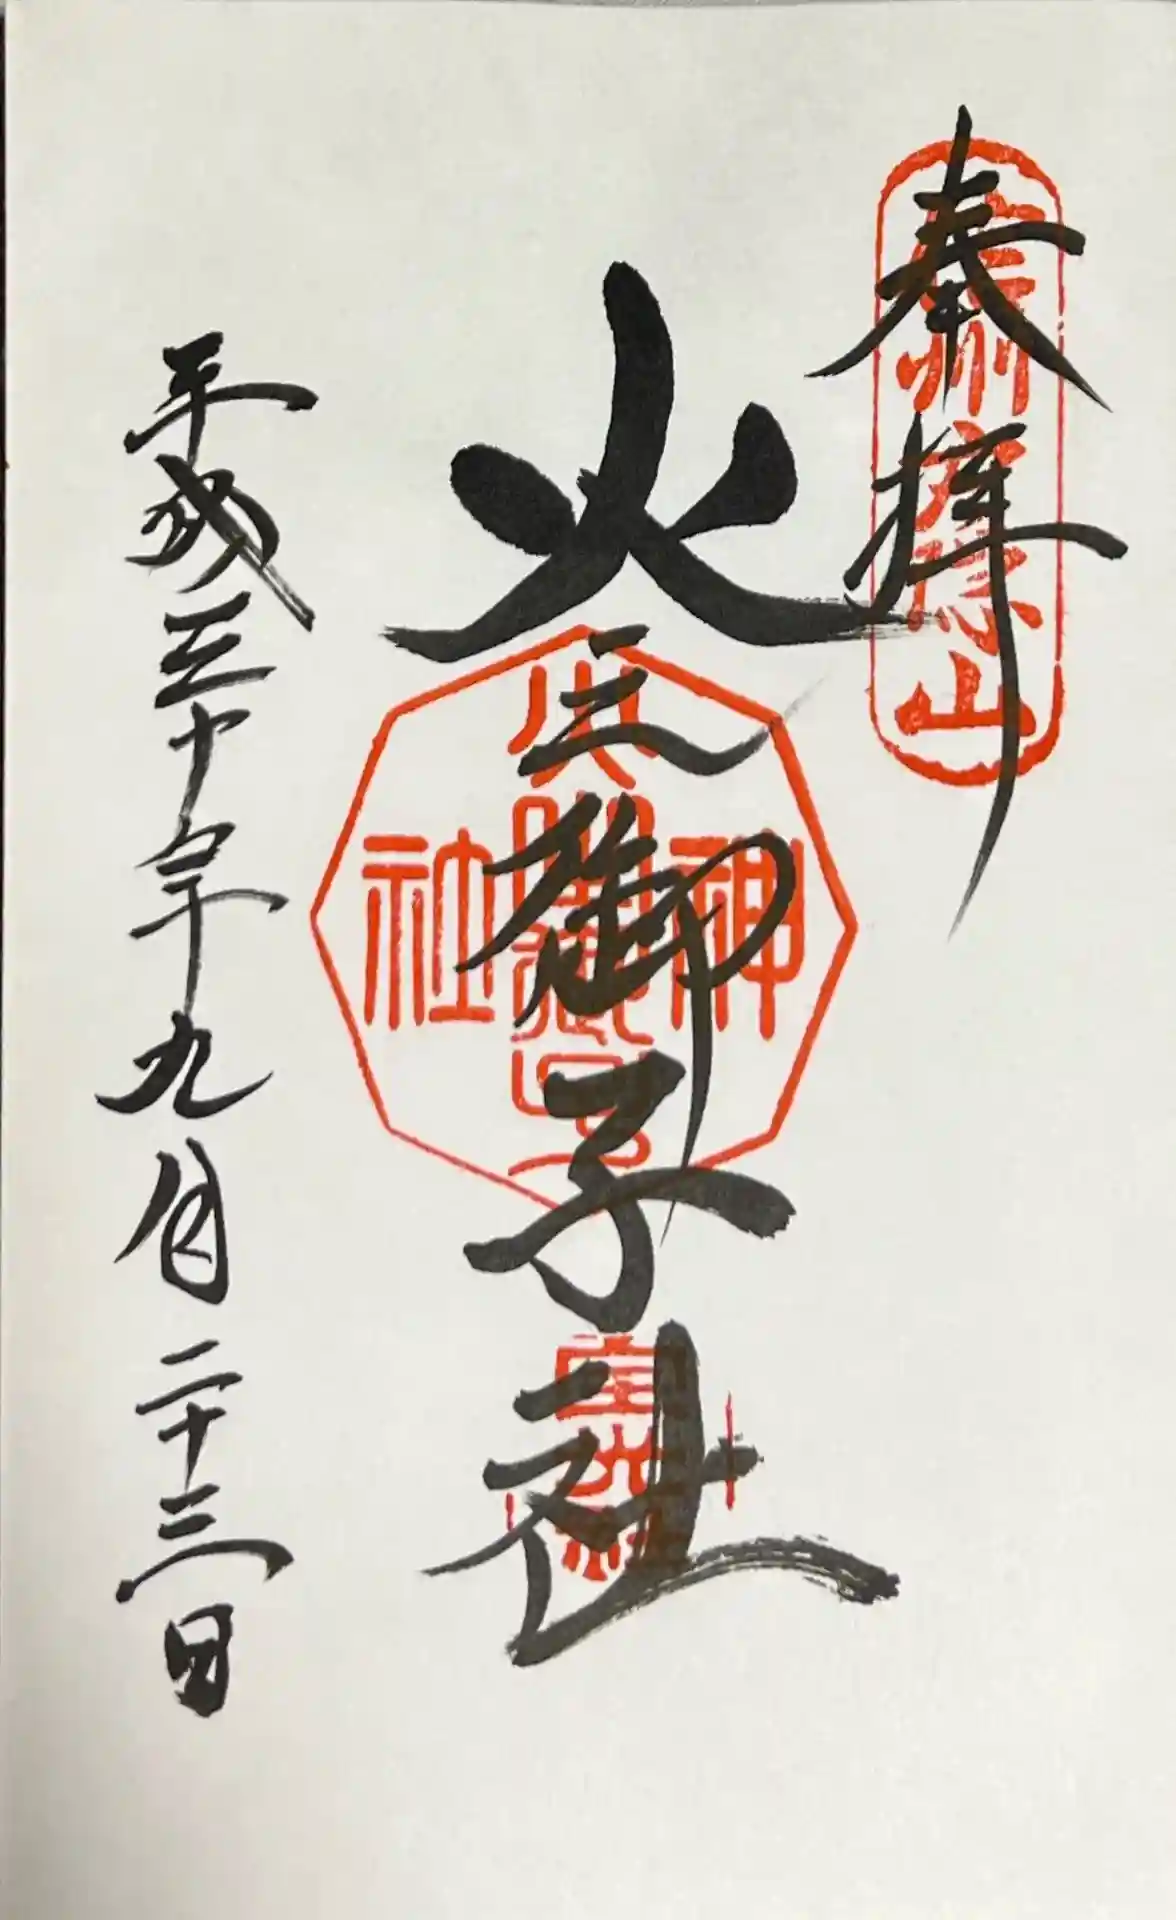 奉拝
信州戸隠山
火之御子社
神社
平成三十年九月二十三日